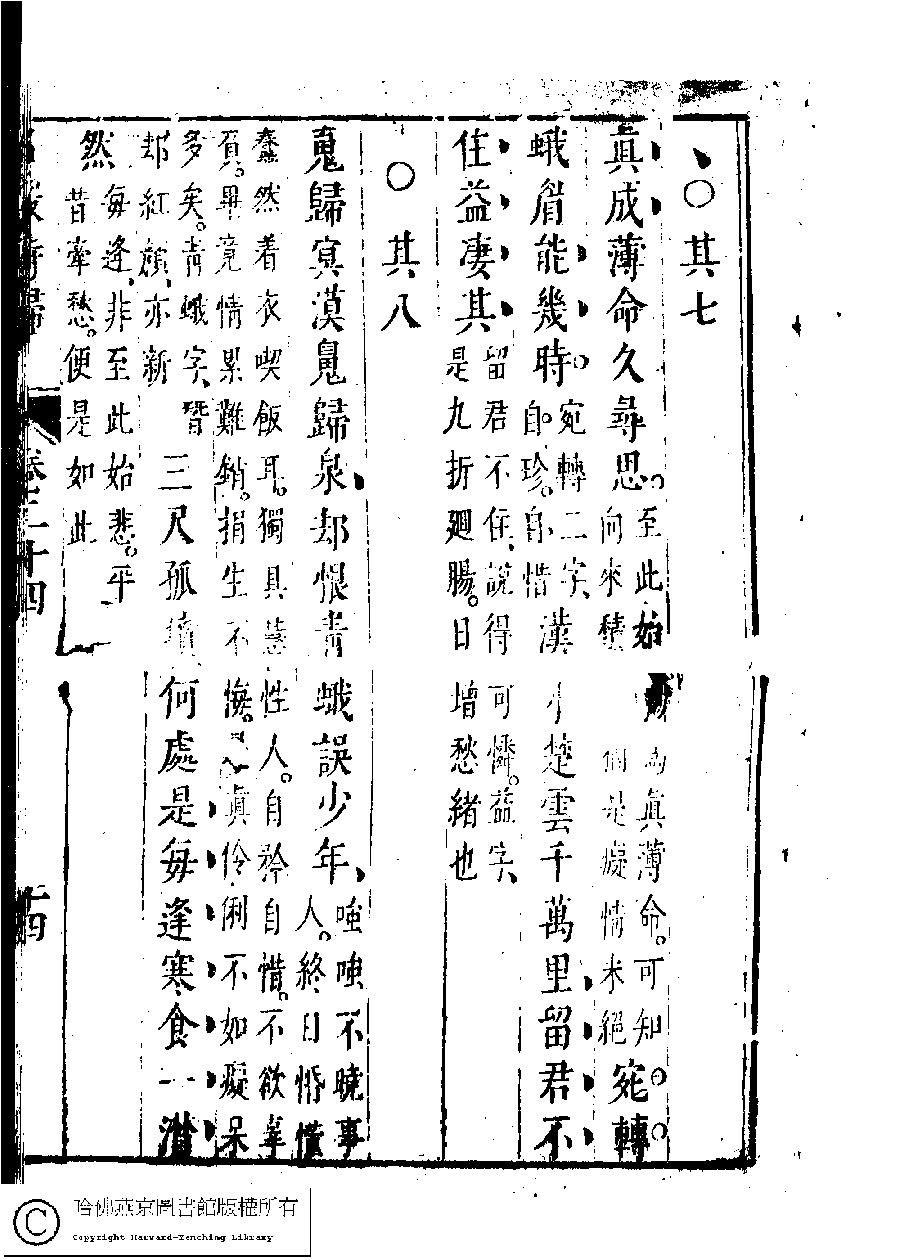 ○其七
真成薄命久尋思。至此始
向來積
為真薄命。可知
個是癡情未絕
宛轉
蛾眉能幾時。宛轉二字、漢
自珍。自惜
小楚雲千萬里留君不
住益凄其留君不住、說得可憐。益字、
是九折廻腸。日增愁緒也
○其八
䰟歸㝠漠䰟歸泉却恨青蛾誤少年、嗤嗤不曉事
人。終日惛懂
蠢然着衣喫飯耳。獨具慧性人。自矜自惜。不欲辜
負。畢竟情累難銷。捐生不悔。又真伶俐不如癡呆
多矣。青蛾字、替
却紅顏、亦新
三尺孤墳何處是每逢寒食一潸
然每逢、非至此始悲。平
昔牽愁。便是如此
詩歸
卷二十四
十四
哈佛燕京圖書館版權所有
Copyright Harvard-Yenching Library